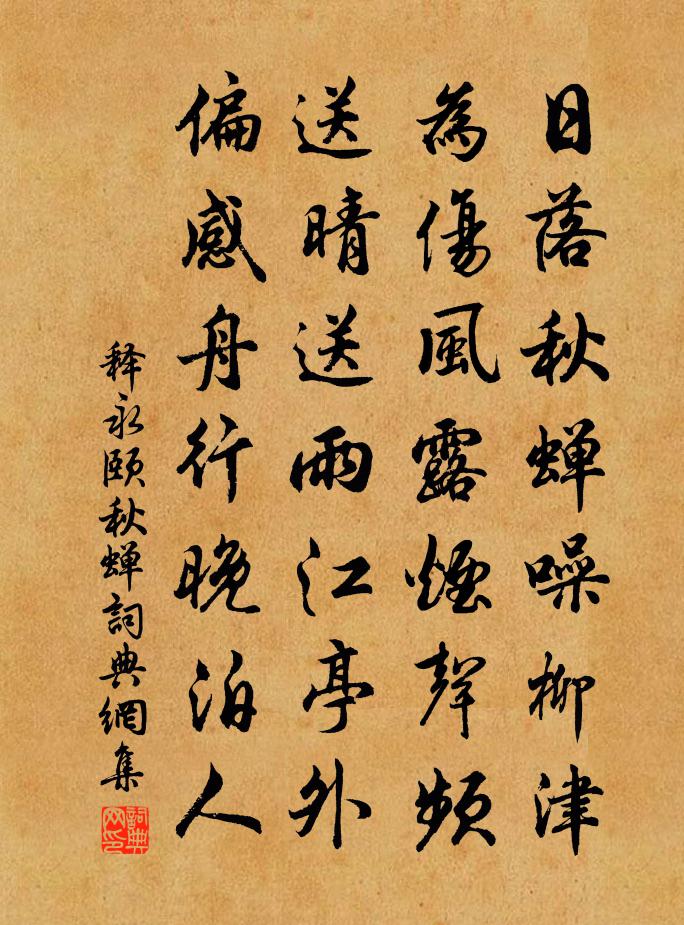 日落秋蝉噪柳津
為傷風露煙聲頻
送晴送雨江亭外
偏感舟行晚泊人
释永颐秋蝉詞典網集
詞典网印